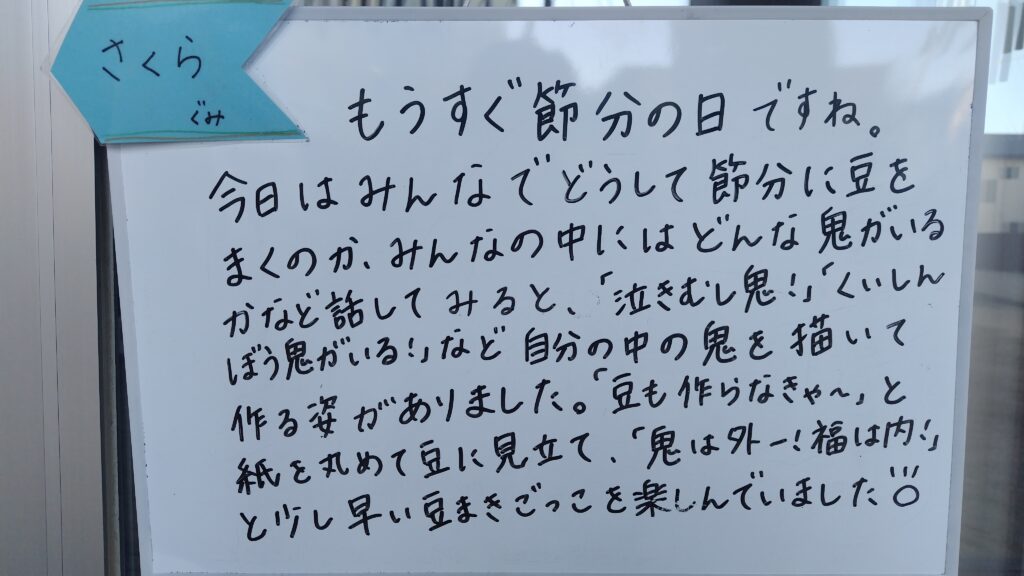 さくら
ぐみ
もうすぐ節分の日ですね。
今日はみんなでどうして節分に豆を
まくのか、みんなの中にはどんな鬼がいる
かなど話してみると、「泣きむし鬼!」「くいしん
ぼう鬼がいる!」など自分の中の鬼を描いて
作る姿がありました。「豆も作らなきゃ~」と
紙を丸めて豆に見立て、「鬼は外ー!福は内!」
と少し早い豆まきごっこを楽しんでいました